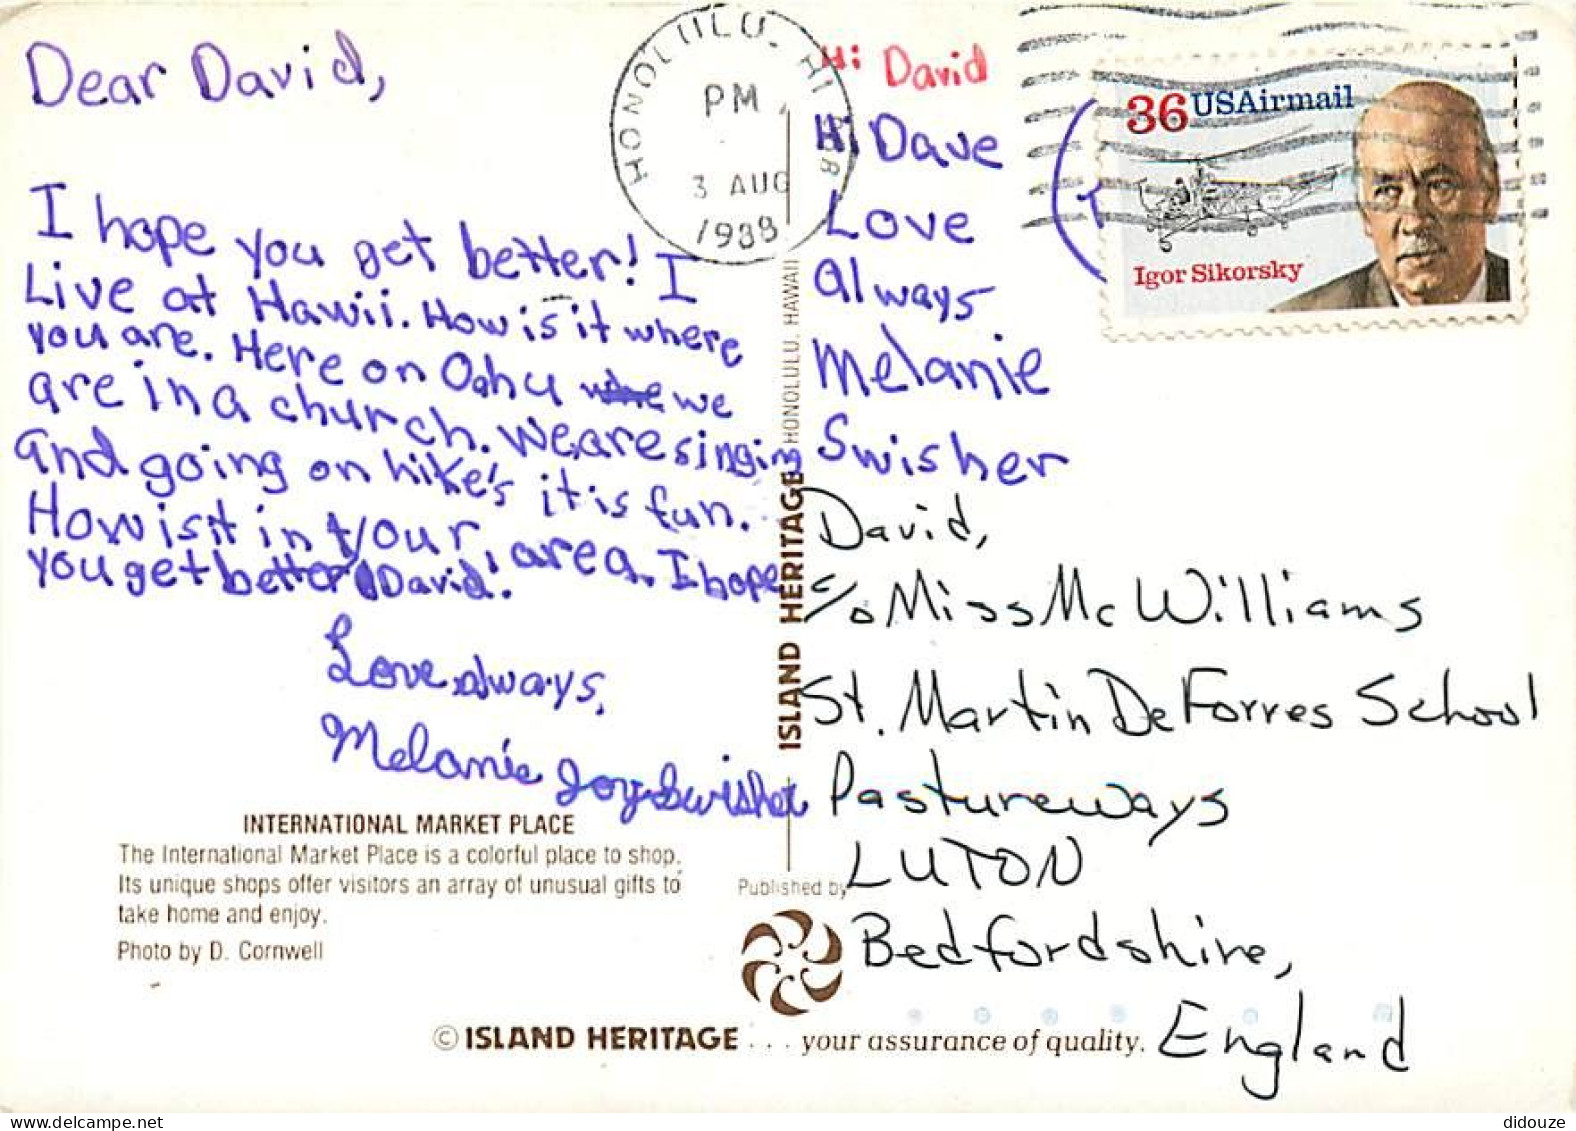 Dear David,
I hope you get better! I
Live at Hawii. How is it where
you are. Here on Oahu we
are in a church. We are singing
and going on hike's it is fun.
How is it in your area. I hope
you get better David!
Love always,
Melanie Joy Swisher
INTERNATIONAL MARKET PLACE
The International Market Place is a colorful place to shop.
Its unique shops offer visitors an array of unusual gifts to
take home and enjoy.
Photo by D. Cornwell
© ISLAND HERITAGE . . . your assurance of quality.
HONOLULU, HI 968
PM
3 AUG
1988
ISLAND HERITAGE HONOLULU, HAWAII
Published by
Hi David
Hi Dave
Love
always
Melanie
Swisher
36 USAirmail
Igor Sikorsky
T
David,
c/o Miss McWilliams
St. Martin DeForres School
Pastureways
LUTON
Bedfordshire,
England
didouze
delcampe.net